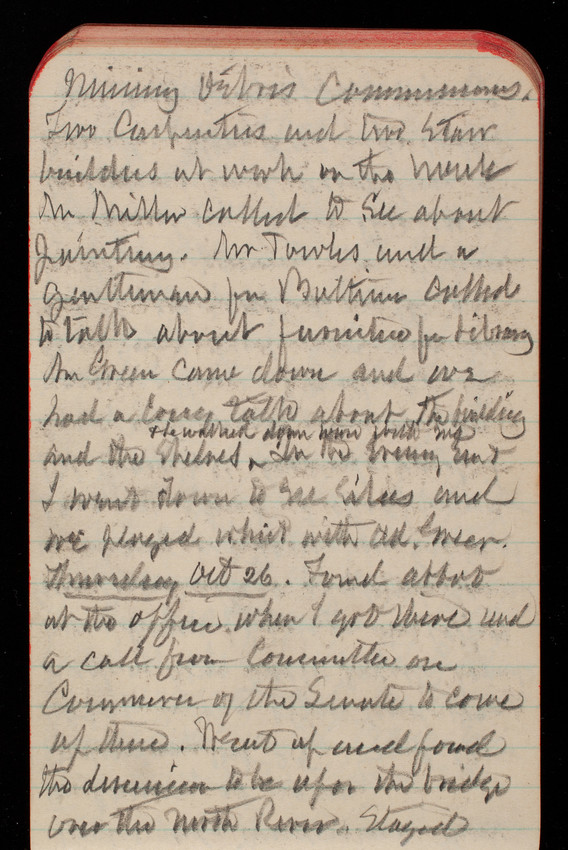 Mining Debris Commissions.
Two Carpenters and two Stair
builders at work on the house
Mr Miller called to see about
painting. Mr Towles and a
gentleman for called
to talk about furniture for Library
Mr Green came down and we
had a long talk about the building
& he walked down town with me
and the shelves, In the evening
I went down to see Silas and
we played whist with Ad. Green.
Thursday Oct 26. Found Abbot
at the office when I got there and
a call from Committee on
Commerce of the Senate to come
up there. Went up and found
the discussion to be upon the bridge
over the North River. Stayed